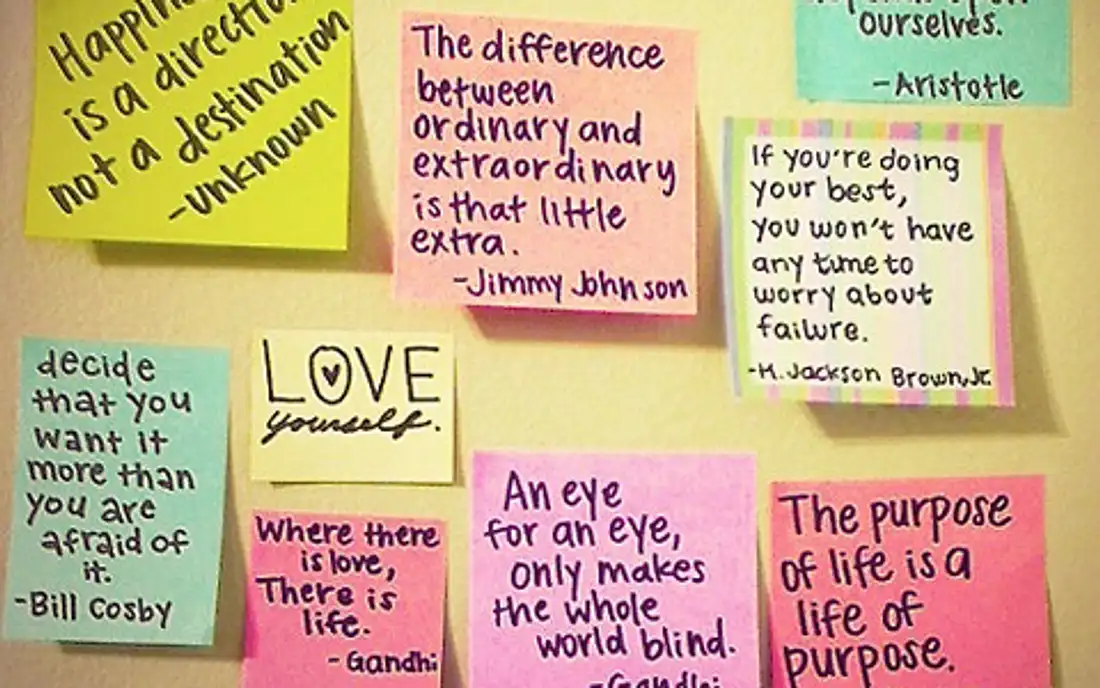 Happin
is a directio
not a destination
-unknown
The difference
between
ordinary and
extraordinary
is that little
extra.
-Jimmy Johnson
ourselves.
-Aristotle
If you're doing
your best,
you won't have
any time to
worry about
failure.
-H. Jackson Brown, Jr.
decide
that you
want it
more than
you are
afraid of
it.
-Bill Cosby
LOVE
yourself.
Where there
is love,
There is
life.
-Gandhi
An eye
for an eye,
only makes
the whole
world blind.
-Gandhi
The purpose
of life is a
life of
purpose.